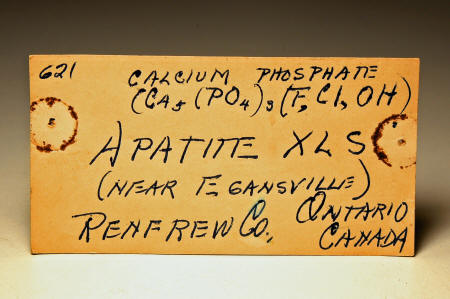 621
CALCIUM PHOSPHATE
(CA5 (PO4)3 (F, Cl, OH)
APATITE XLS
(NEAR EGANSVILLE)
RENFREW CO., ONTARIO
CANADA